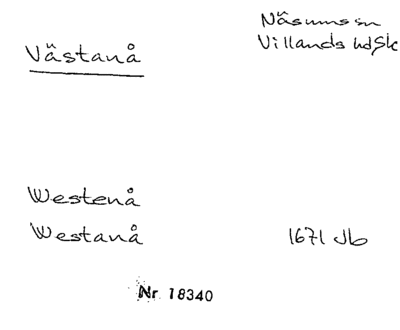 Västanå
Näsums sn
Villands hd Sk
Westenå
Westanå
1671 Jb
Nr 18340